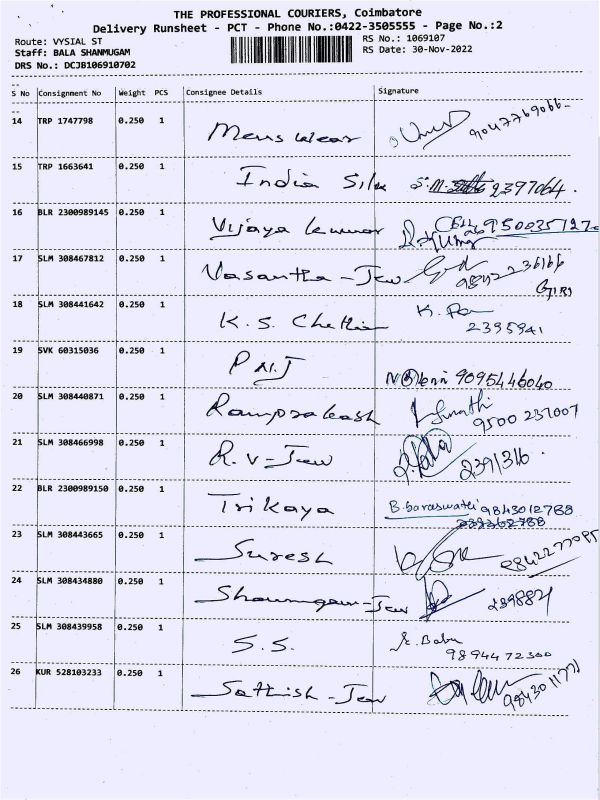 THE PROFESSIONAL COURIERS, Coimbatore
Delivery Runsheet - PCT - Phone No.:0422-3505555 - Page No.:2
Route: VYSIAL ST
RS No.: 1069107
Staff: BALA SHANMUGAM
RS Date: 30-Nov-2022
DRS No.: DCJB106910702
S No Consignment No Weight PCS Consignee Details Signature
14 TRP 1747798 0.250 1 Mens wear 9047769066
15 TRP 1663641 0.250 1 India Silk S.M. 2397064.
16 BLR 2300989145 0.250 1 Vijaya kumar
17 SLM 308467812 0.250 1 Vasantha - Jew
18 SLM 308441642 0.250 1 K. S. Chettiar K.
2395941
19 SVK 60315036 0.250 1 P N.J 9095446040
20 SLM 308440871 0.250 1 Ramprakash
9500 237007
21 SLM 308466998 0.250 1 R. V - Jew 2391316.
22 BLR 2300989150 0.250 1 Trikaya B. Saraswathi 9843012788
23 SLM 308443665 0.250 1 Suresh
24 SLM 308434880 0.250 1 Jew
25 SLM 308439958 0.250 1 S. S. Babu
9894472300
26 KUR 528103233 0.250 1 Sathish - Jew